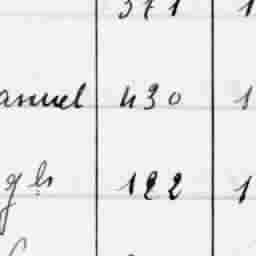 371 1
anuel 430 1
122 1